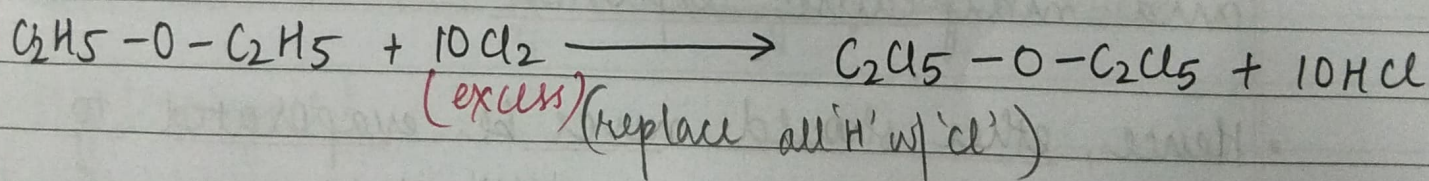 C2H5 - O - C2H5 + 10Cl2 ⟶ C2Cl5 - O - C2Cl5 + 10HCl
(excess) (replace all 'H' w/ 'Cl')